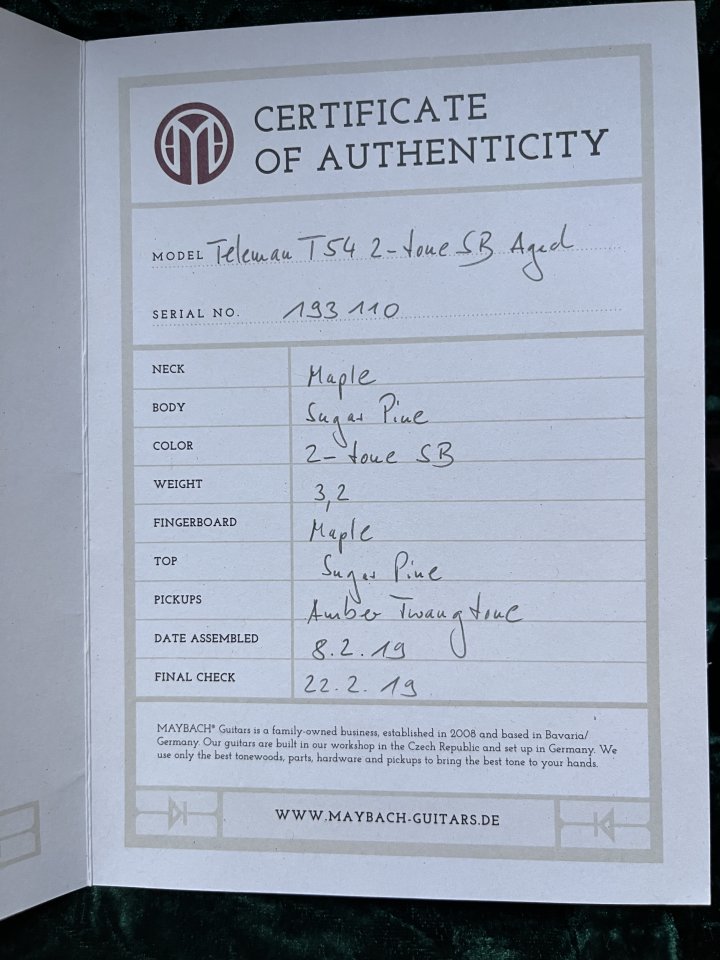 CERTIFICATE
OF AUTHENTICITY
MODEL Teleman T54 2-tone SB Aged
SERIAL NO. 193110
NECK Maple
BODY Sugar Pine
COLOR 2-tone SB
WEIGHT 3,2
FINGERBOARD Maple
TOP Sugar Pine
PICKUPS Amber Twangtone
DATE ASSEMBLED 8.2.19
FINAL CHECK 22.2.19
MAYBACH® Guitars is a family-owned business, established in 2008 and based in Bavaria/
Germany. Our guitars are built in our workshop in the Czech Republic and set up in Germany. We
use only the best tonewoods, parts, hardware and pickups to bring the best tone to your hands.
WWW.MAYBACH-GUITARS.DE